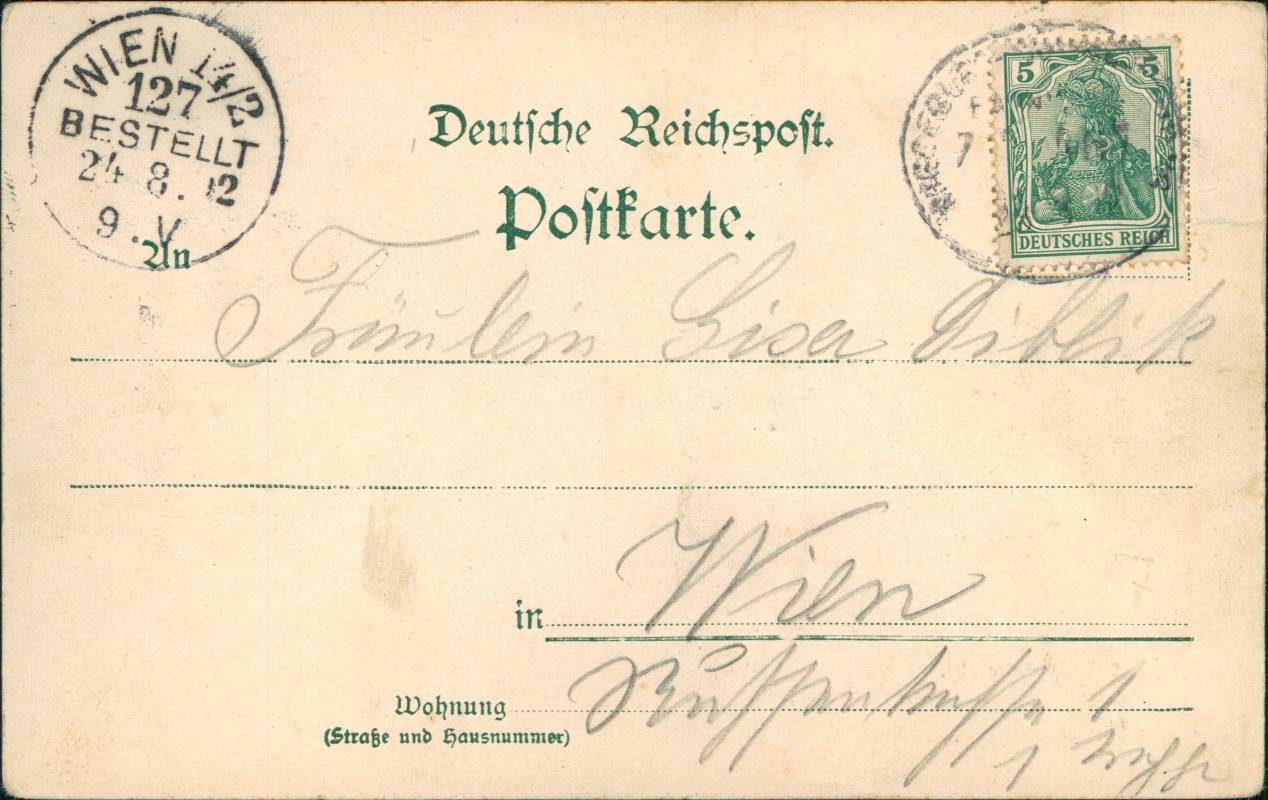 WIEN 14/2
127
BESTELLT
24 8. 02
9. V
5 5
DEUTSCHES REICH
Deutsche Reichspost.
Postkarte.
An
Fräulein Gisa Diblik
in Wien
Wohnung
(Straße und Hausnummer)
1
1